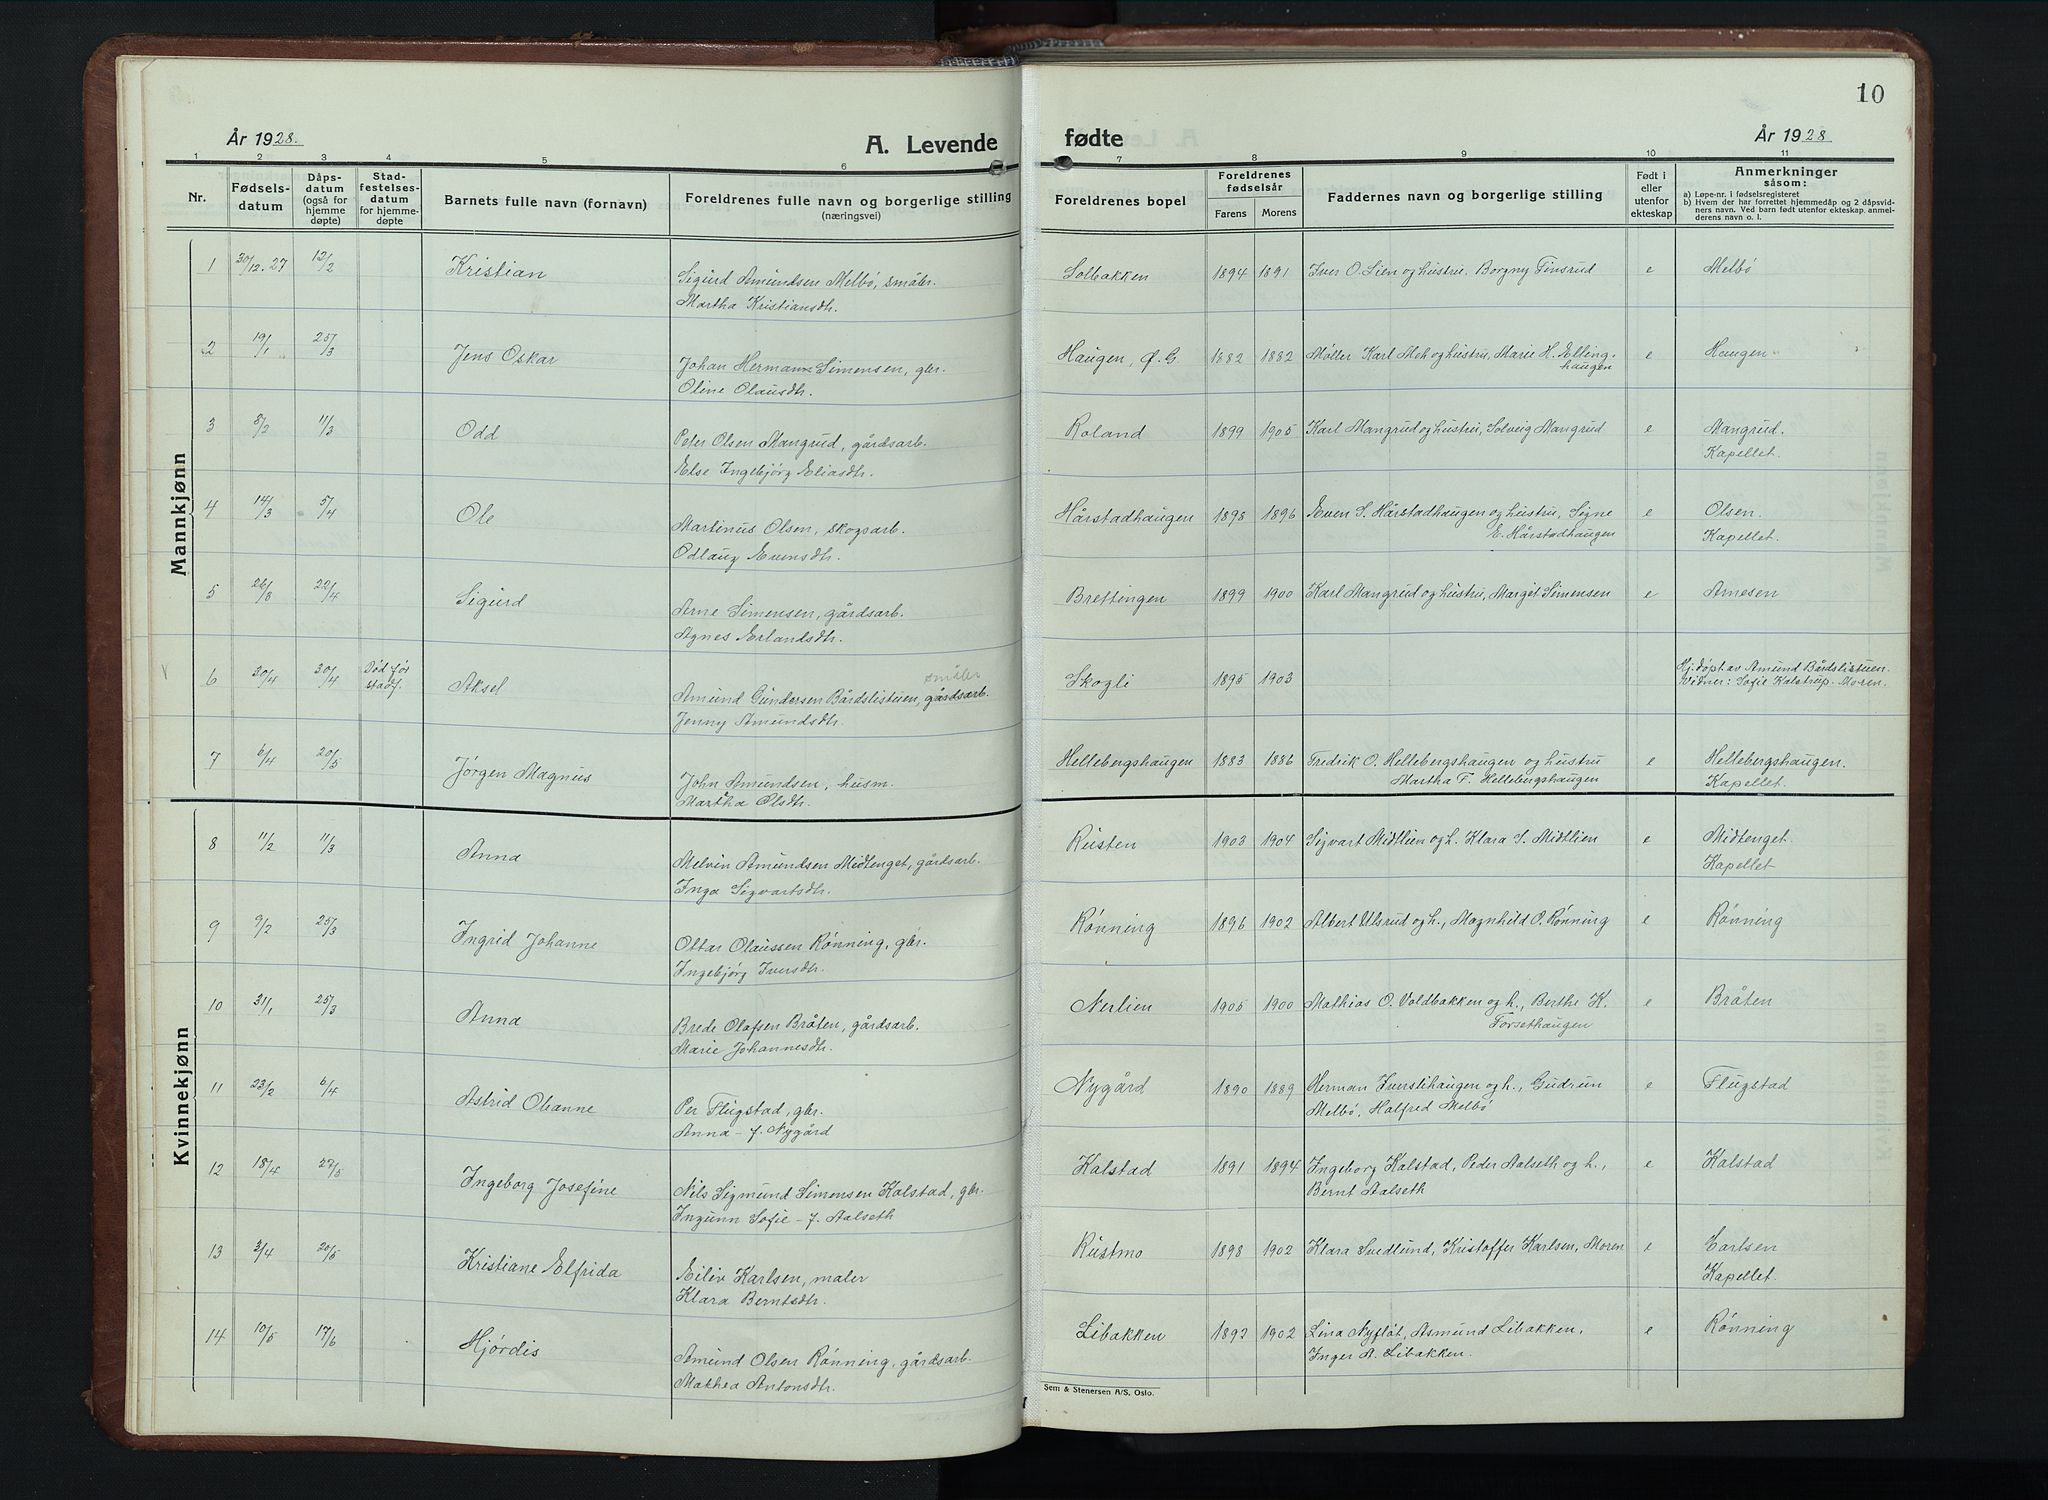 År 1928.
A. Levende
1 2 3 4 5 6
Nr.
Fødsels-
datum
Dåps-
datum
(også for
hjemme
døpte)
Stad-
festelses-
datum
for hjemme-
døpte
Barnets fulle navn (fornavn)
Foreldrenes fulle navn og borgerlige stilling
(næringsvei)
Mannkjønn
1 30/12.27 12/2 Kristian
Sigurd Amundsen Melbö, småbr.
Martha Kristiansdtr.
2 19/1 25/3 Jens Oskar
Johan Hermann Simensen, gbr.
Oline Olausdtr.
3 8/2 11/3 Odd
Peter Olsen Mangrud, gårdsarb.
Else Ingebjørg Eliasdtr.
4 14/3 5/4 Ole
Martinus Olsen, skogsarb.
Odlaug Evensdtr.
5 26/3 22/4 Sigurd
Arne Simensen, gårdsarb.
Agnes Erlandsdtr.
6 30/4 30/4 Död før
stadf.
Aksel
småbr
Amund Gundersen Bårdslistuen, gårdsarb.
Jenny Amundsdtr.
7 6/4 20/5 Jørgen Magnus
John Amundsen, husm.
Martha Olsdtr.
Kvinnekjønn
8 11/2 11/3 Anna
Melvin Amundsen Midtenget, gårdsarb.
Inga Sigvartsdtr.
9 9/2 25/3 Ingrid Johanne
Ottar Olaussen Rønning, gbr.
Ingebjørg Iversdtr.
10 31/1 25/3 Anna
Brede Olafsen Bråten, gårdsarb.
Marie Johannesdtr.
11 23/2 6/4 Astrid Oleanne
Per Flugstad, gbr.
Anna - f. Nygård
12 18/4 27/5 Ingeborg Josefine
Nils Sigmund Simensen Kalstad, gbr.
Ingunn Sofie - f. Aalseth
13 3/4 20/5 Kristiane Elfrida
Eiliv Karlsen, maler
Klara Berntsdtr.
14 10/5 17/6 Hjördis
Amund Olsen Rønning, gårdsarb.
Mathea Antonsdtr.
10
fødte
År 1928
7 8 9 10 11
Foreldrenes bopel
Foreldrenes
fødselsår
Farens Morens
Faddernes navn og borgerlige stilling
Født i
eller
utenfor
ekteskap
Anmerkninger
såsom:
a) Løpe-nr. i fødselsregisteret
b) Hvem der har forrettet hjemmedåp og 2 dåpsvid-
ners navn. Ved barn født utenfor ekteskap. anmel-
derens navn o. l.
Solbakken 1894 1891 Iver O. Lien og hustru. Borgny Tinsrud e Melbö
Haugen, Ø. G. 1882 1882 Møller Karl Moh og hustru, Marie H. Elling-
haugen
e Haugen
Roland 1899 1905 Karl Mangrud og hustru, Solveig Mangrud e Mangrud.
Kapellet.
Hårstadhaugen 1898 1896 Even S. Hårstadhaugen og hustru, Signe
E. Hårstadhaugen
e Olsen.
Kapellet.
Brettingen 1899 1900 Karl Mangrud og hustru, Marget Simensen e Arnesen
Skogli 1895 1903
Hj. døpt av Amund Bårdslistuen.
Vitner: Sofie Kalstrup. Moren.
Hellebergshaugen 1883 1886 Fredrik O. Hellebergshaugen og hustru
Martha F. Hellebergshaugen
e Hellebergshaugen.
Kapellet.
Rusten 1903 1904 Sigvart Midtlien og h. Klara S. Midtlien e Midtenget.
Kapellet
Rønning 1896 1902 Albert Ulsrud og h., Magnhild O. Rønning e Rønning
Nerlien 1905 1900 Mathias O. Voldbakken og h., Berthe K.
Forsethaugen
e Bråten
Nygård 1890 1889 Herman Iverslihaugen og h., Gudrun
Melbö, Halfred Melbö
e Flugstad
Kalstad 1891 1894 Ingeborg Kalstad, Peder Aalseth og h.,
Bernt Aalseth
e Kalstad
Rustmo 1898 1902 Klara Svedlund, Kristoffer Karlsen, Moren e Carlsen
Kapellet.
Libakken 1892 1902 Lina Nyfløt, Asmund Libakken,
Inger A. Libakken.
e Rønning
Sem & Stenersen A/S, Oslo.